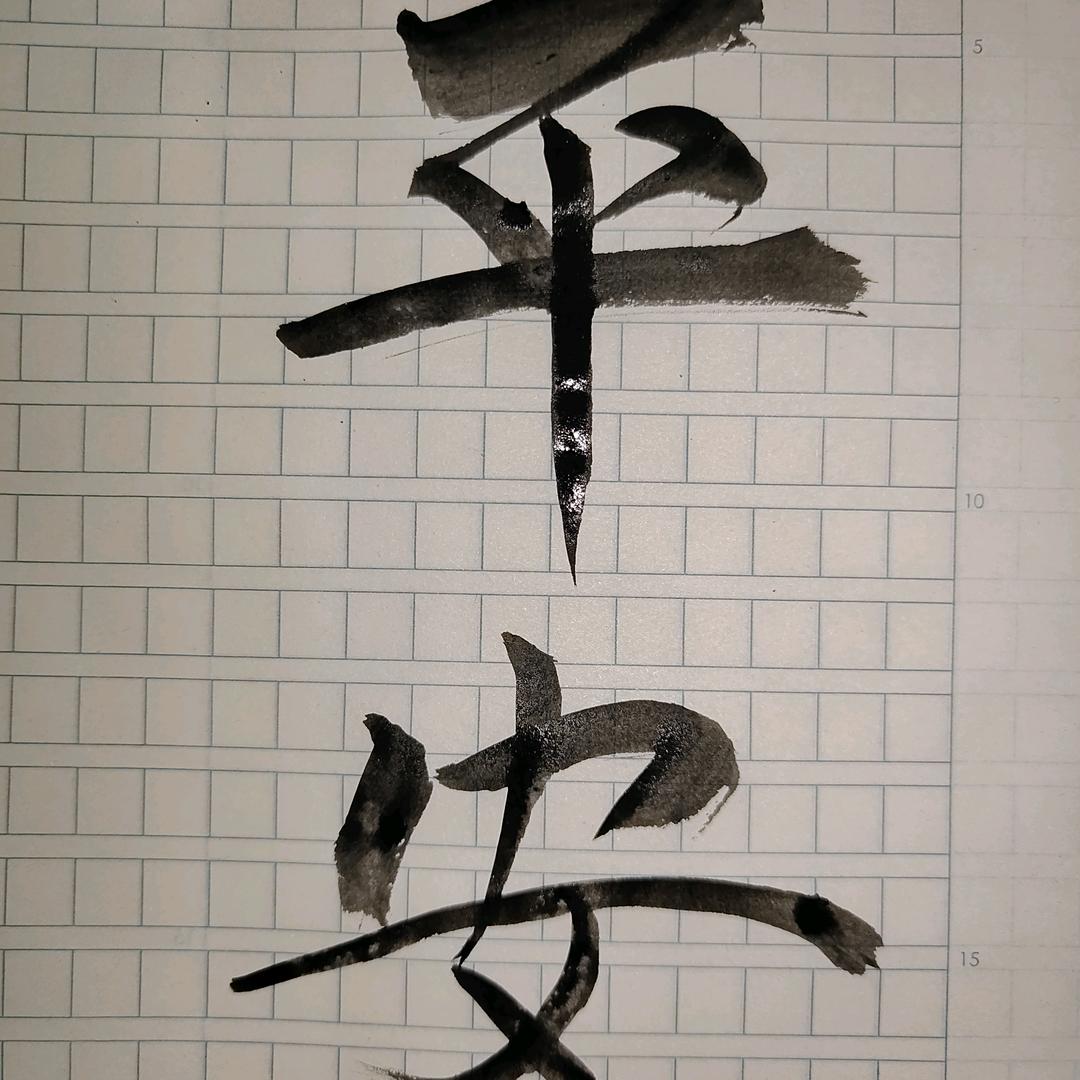 平安
5
10
15